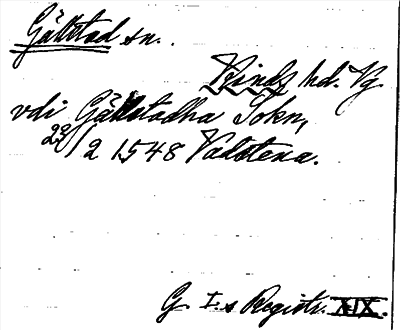 Gällstad sn.
Kinds hd. Vg
vdi Gällstadha Sokn,
22/2 1548 Vadstena.
G. I.s Registr. XIX.